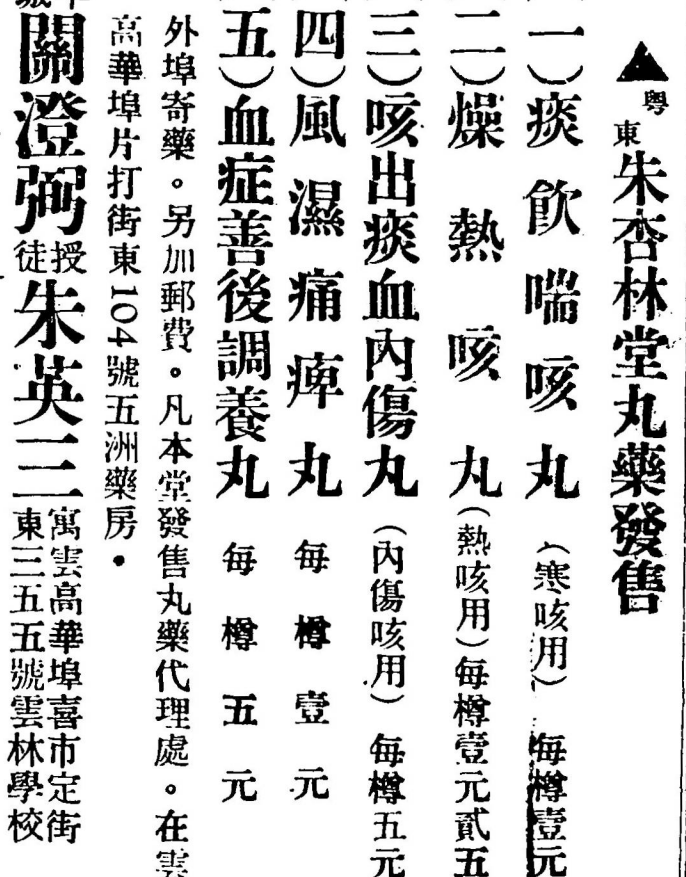 ▲粵東朱杏林堂丸藥發售
一）痰飲喘咳丸（寒咳用）每樽壹元
二）燥熱咳丸（熱咳用）每樽壹元貳五
三）咳出痰血內傷丸（內傷咳用）每樽五元
四）風濕痛痺丸每樽壹元
五）血症善後調養丸每樽五元
外埠寄藥。另加郵費。凡本堂發售丸藥代理處。在雲
高華埠片打街東104號五洲藥房．
關澄弼授徒朱英三寓雲高華埠喜市定街
東三五五號雲林學校